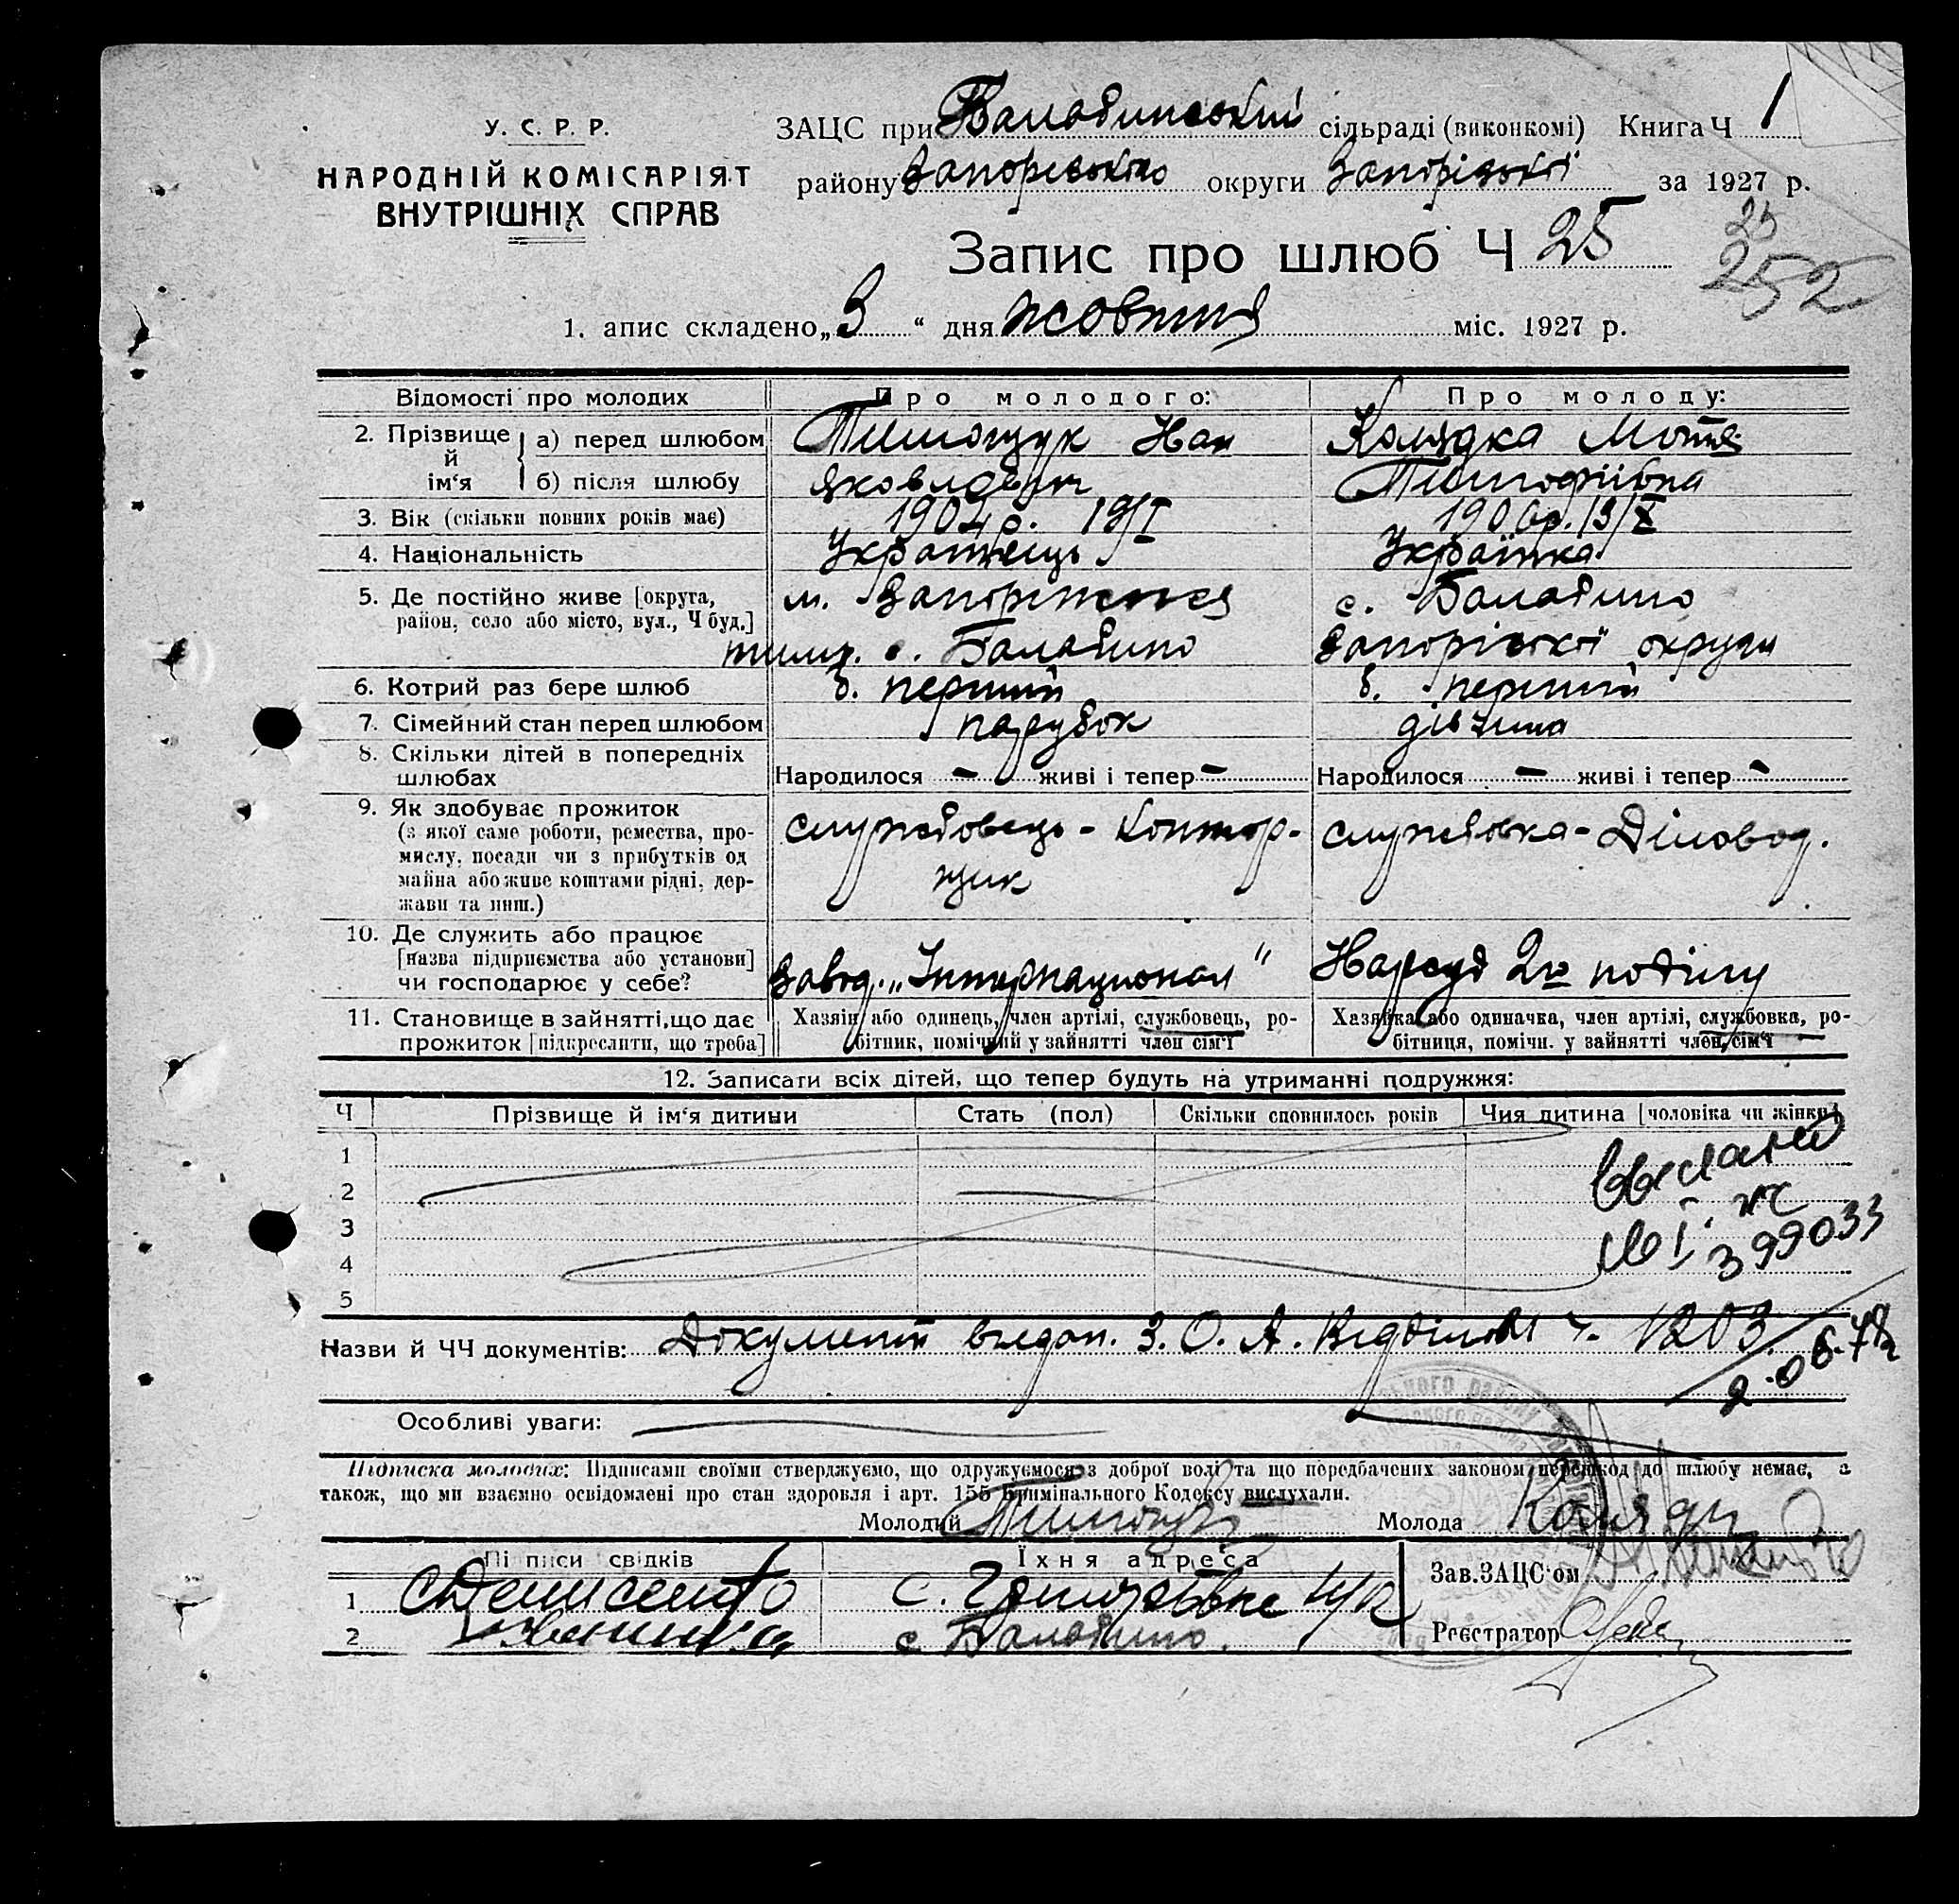 У. С. Р. Р.
НАРОДНІЙ КОМІСАРІЯТ
ВНУТРІШНІХ СПРАВ
ЗАЦС при Балабинській сільраді (виконкомі) Книга Ч 1
району Запорізького округи Запорізької за 1927 р.
Запис про шлюб Ч 25
25
252
1. апис складено „3“ дня жовтня міс. 1927 р.
Відомості про молодих Про молодого: Про молоду:
2. Прізвище й ім‘я а) перед шлюбом Тимощук Іван Колядка Мотя
б) після шлюбу Яковлевич Тимофіївна
3. Вік (скільки повних років має) 1904 р. 19/I 1906 р. 19/X
4. Національність Українець Українка
5. Де постійно живе [округа, м. Запоріжжя с. Балабино
район, село або місто, вул., Ч буд.]
тимч. с. Балабино Запорізької округи
6. Котрий раз бере шлюб б. перший б. перший
7. Сімейний стан перед шлюбом парубок дівчина
8. Скільки дітей в попередніх
шлюбах Народилося - живі і тепер - Народилося - живі і тепер -
9. Як здобуває прожиток
(з якої саме роботи, ремества, про- службовець - контор- службовка - Діловод.
мислу, посади чи з прибутків од
майна або живе коштами рідні, дер- щик
жави та инш.)
10. Де служить або працює
[назва підприємства або установи] завод „Інтернационал“ Нарсуд 2го поділу
чи господарює у себе?
11. Становище в зайнятті, що дає Хазяїн або одинець, член артілі, службовець, ро- Хазяйка або одиначка, член артілі, службовка, ро-
прожиток [підкреслити, що треба] бітник, помічний у зайнятті член сім‘ї бітниця, помічн. у зайнятті член сім‘ї
12. Записати всіх дітей, що тепер будуть на утриманні подружжя:
Ч Прізвище й ім‘я дитини Стать (пол) Скільки сповнилось років Чия дитина [чоловіка чи жінки]
1
2
3
4 399033
5
Назви й ЧЧ документів: Документи видан. З. О. А. Відділом ч. 1203
Особливі уваги:
Підписка молодих: Підписами своїми стверджуємо, що одружуємося з доброї волі та що передбачених законом перешкод до шлюбу немає, а
також, що ми взаємно освідомлені про стан здоровля і арт. 155 Кримінального Кодексу вислухали.
Молодий Тимощук Молода Коляд
Підписи свідків Їхня адреса Зав. ЗАЦС‘ом
1 Денисенко с.
2 с Балабино. Реєстратор